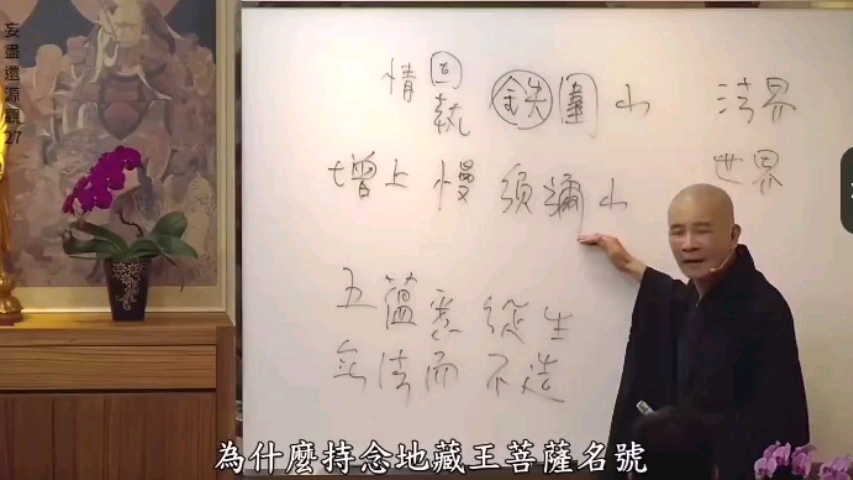 妄盡還源觀27
情 固執 鉄圍山 法界
增上慢 須彌山 世界
五蘊悉從生
無法而不造
為什麼持念地藏王菩薩名號